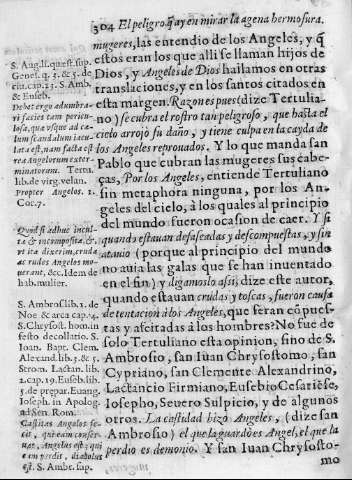 304 El peligro q̃ ay en mirar la agena hermosura.
mugeres, las entendio de los Angeles, y q̃
estos eran los que alli se llaman hijos de
Dios, y Angeles de Dios hallamos en otras
translaciones, y en los santos citados en
esta margen. Razon es pues (dize Tertulia-
no) se cubra el rostro tan peligroso, que hasta el
cielo arrojò su daño, y tiene culpa en la cayda de
los Angeles reprouados. Y lo que manda san
Pablo que cubran las mugeres sus cabe-
ças, Por los Angeles, entiende Tertuliano
sin metaphora ninguna, por los An-
geles del cielo, à los quales al principio
del mundo fueron ocasion de caer. Y si
quando estauan desaseadas y descompuestas, y sin
atauio (porque al principio del mundo
no auia las galas que se han inuentado
en el fin) y digamoslo assi, dize este autor,
quando estauan crudas y toscas, fueron causa
de tentacion à los Angeles, que seran cõpues-
tas y afeitadas à los hombres? No fue de
solo Tertuliano esta opinion, sino de S.
Ambrosio, san Iuan Chrysostomo, san
Cypriano, san Clemente Alexandrino,
Lactancio Firmiano, Eusebio Cesariẽse,
Iosepho, Seuero Sulpicio, y de algunos
otros. La castidad hizo Angeles, (dize san
Ambrosio) el que la guardò es Angel, el que la
perdio es demonio. Y san Iuan Chrysosto-
mo
S. Aug. ll. quæst. sup.
Genes. q. 3. & 5. de
ciu. cap. 23. S. Amb.
& Euseb.
Debet ergo adumbra-
ri facies tam pericu-
losa, quæ vsque ad cæ-
lum scandalum iacu-
lata est, nam facta est
rea Angelorum exter-
minatorum. Tertu.
lib. de virg. velan.
Propter Angelos. 1.
Cor. 7.
Quod si adhuc incul-
tæ & incompositæ, &
vt ita dixerim, crudæ
ac rudes Angelos mo-
uerant, &c. Idem de
hab. mulier.
S. Ambros. lib. 1. de
Noe & arca cap. 4.
S. Chrysost. hom. in
festo decollatio. S.
Ioan. Bapt. Clem.
Alexand. lib. 3. & 5.
Strom. Lactan. lib.
2. cap. 19. Euseb. lib.
5. de prepar. Euang.
Ioseph. in Apolog.
ad Sen. Rom.
Castitas Angelos fe-
cit, qui eam conser-
uat, Angelus est: qui
eam perdit, diabolus
est. S. Ambr. sup.